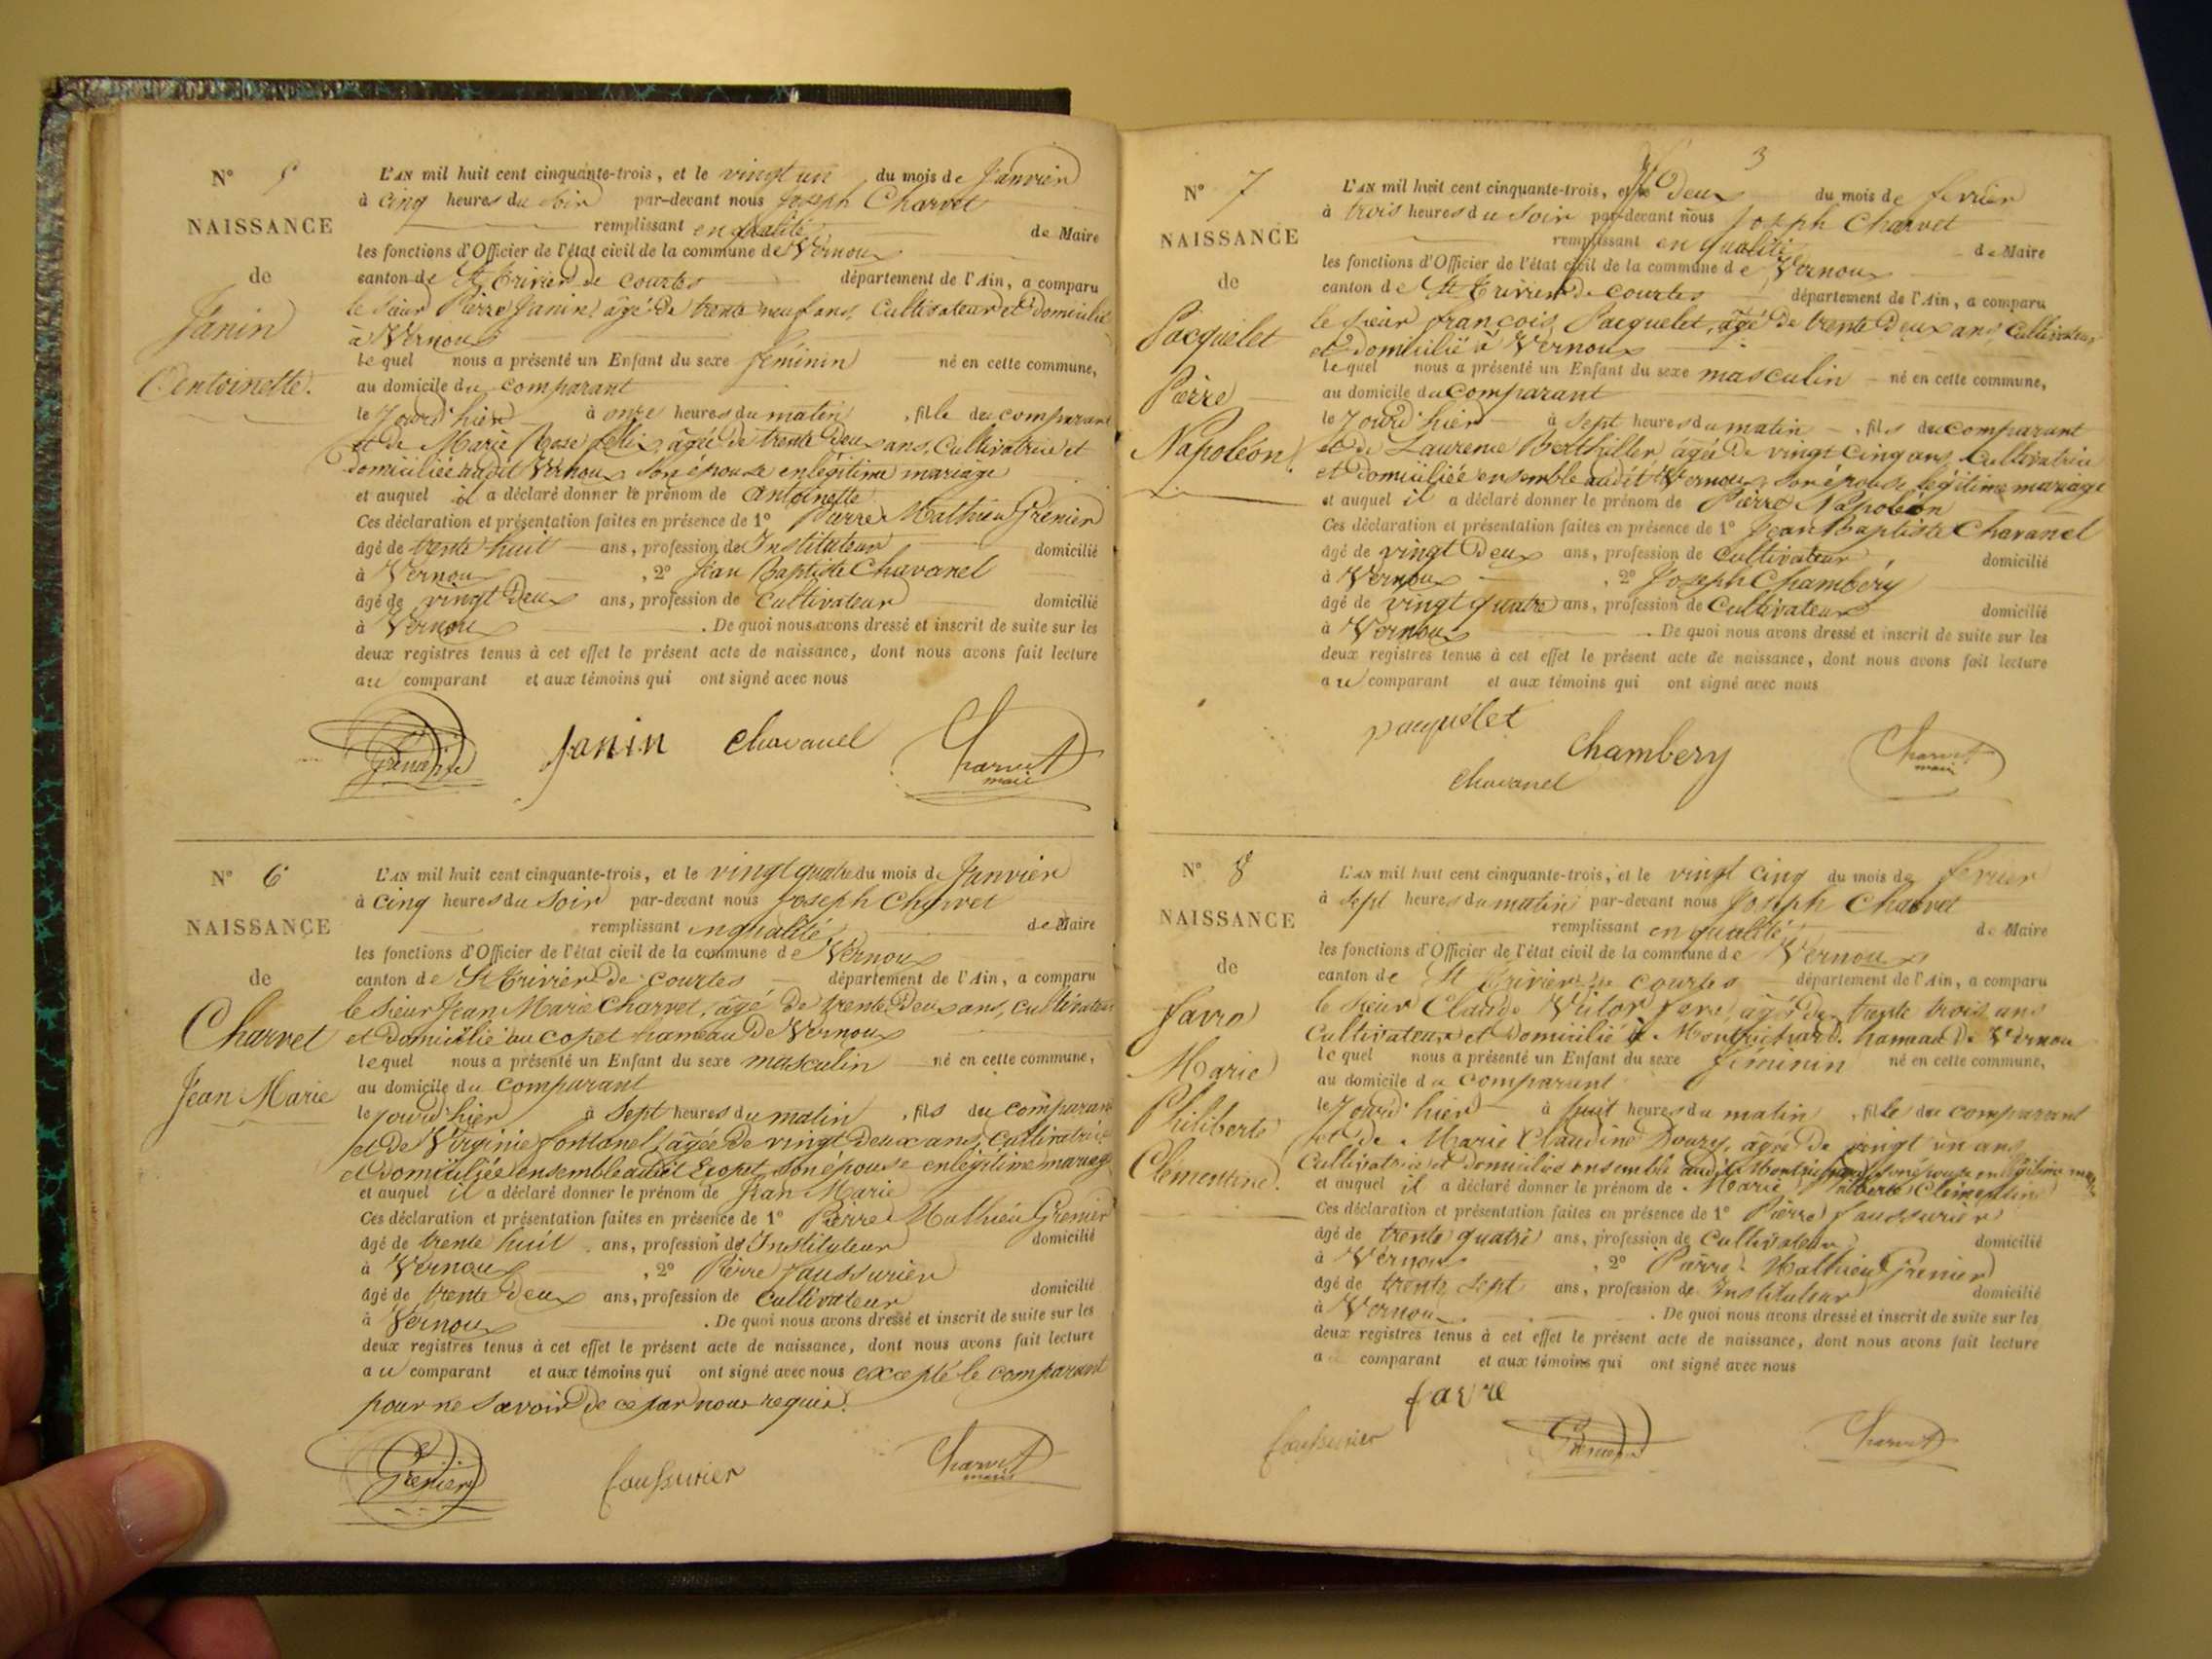 N° 5
NAISSANCE
de
Janin
Antoinette.
L'AN mil huit cent cinquante-trois, et le vingt un du mois de Janvier
à Cinq heures du soir par-devant nous Joseph Charvet
remplissant en qualité de Maire
les fonctions d'Officier de l'état civil de la commune de Vernoux
canton de St Trivier de Courtes département de l'Ain, a comparu
le sieur Pierre Janin, âgé de trente neuf ans, Cultivateur et domicilié
à Vernoux
lequel nous a présenté un Enfant du sexe féminin né en cette commune,
au domicile du comparant
le jourd'hier à onze heures du matin, fille du comparant
et de Marie Rose âgée de trente deux ans, Cultivatrice et
domiciliée audit Vernoux son épouse en légitime mariage
et auquel il a déclaré donner le prénom de Antoinette
Ces déclaration et présentation faites en présence de 1° Pierre Mathieu Grenier
âgé de trente huit ans, profession de Instituteur domicilié
à Vernoux, 2° Jean Baptiste Chavanel
âgé de vingt deux ans, profession de Cultivateur domicilié
à Vernoux. De quoi nous avons dressé et inscrit de suite sur les
deux registres tenus à cet effet le présent acte de naissance, dont nous avons fait lecture
au comparant et aux témoins qui ont signé avec nous
Grenier Janin Chavanel Charvet
maire
N° 6
NAISSANCE
de
Charvet
Jean Marie
L'AN mil huit cent cinquante-trois, et le vingt quatre du mois de Janvier
à Cinq heures du soir par-devant nous Joseph Charvet
remplissant en qualité de Maire
les fonctions d'Officier de l'état civil de la commune de Vernoux
canton de St Trivier de Courtes département de l'Ain, a comparu
le sieur Jean Marie Charvet, âgé de trente deux ans, cultivateur
et domicilié au Copet hameau de Vernoux
lequel nous a présenté un Enfant du sexe masculin né en cette commune,
au domicile du comparant
le jourd'hier à sept heures du matin, fils du comparant
et de Virginie Fontanel, âgée de vingt deux ans, Cultivatrice
et domiciliée ensemble audit Copet, son épouse en légitime mariage
et auquel il a déclaré donner le prénom de Jean Marie
Ces déclaration et présentation faites en présence de 1° Pierre Mathieu Grenier
âgé de trente huit ans, profession de Instituteur domicilié
à Vernoux, 2° Pierre Faussurier
âgé de trente deux ans, profession de Cultivateur domicilié
à Vernoux. De quoi nous avons dressé et inscrit de suite sur les
deux registres tenus à cet effet le présent acte de naissance, dont nous avons fait lecture
au comparant et aux témoins qui ont signé avec nous excepté le comparant
pour ne savoir de ce par nous requis.
Grenier Faussurier Charvet
maire
3
N° 7
NAISSANCE
de
Pacquelet
Pierre
Napoléon.
L'AN mil huit cent cinquante-trois, et le deux du mois de fevrier
à trois heures du soir par-devant nous Joseph Charvet
remplissant en qualité de Maire
les fonctions d'Officier de l'état civil de la commune de Vernoux
canton de St Trivier de Courtes département de l'Ain, a comparu
le sieur françois Pacquelet, âgé de trente deux ans, Cultivateur
et domicilié à Vernoux
lequel nous a présenté un Enfant du sexe masculin né en cette commune,
au domicile du comparant
le jourd'hier à sept heures du matin, fils du comparant
et de Laurence Berthiller, âgée de vingt cinq ans, Cultivatrice
et domiciliée ensemble audit Vernoux, son épouse légitime mariage
et auquel il a déclaré donner le prénom de Pierre Napoléon
Ces déclaration et présentation faites en présence de 1° Jean Baptiste Chavanel
âgé de vingt deux ans, profession de Cultivateur domicilié
à Vernoux, 2° Joseph Chambéry
âgé de vingt quatre ans, profession de Cultivateur domicilié
à Vernoux. De quoi nous avons dressé et inscrit de suite sur les
deux registres tenus à cet effet le présent acte de naissance, dont nous avons fait lecture
au comparant et aux témoins qui ont signé avec nous
pacquelet
Chambery Charvet
maire
Chavanel
N° 8
NAISSANCE
de
Favre
Marie
Philiberte
Clémentine.
L'AN mil huit cent cinquante-trois, et le vingt cinq du mois de fevrier
à sept heures du matin par-devant nous Joseph Charvet
remplissant en qualité de Maire
les fonctions d'Officier de l'état civil de la commune de Vernoux
canton de St Trivier de Courtes département de l'Ain, a comparu
le sieur Claude Victor Favre, âgé de trente trois ans
Cultivateur et domicilié à hameau de Vernoux
lequel nous a présenté un Enfant du sexe féminin né en cette commune,
au domicile du comparant
le jourd'hier à huit heures du matin, fille du comparant
et de Marie Claudine âgée de vingt un ans
Cultivatrice et domiciliés ensemble audit son épouse en légitime
et auquel il a déclaré donner le prénom de Marie Philiberte Clémentine
Ces déclaration et présentation faites en présence de 1° Pierre Faussurier
âgé de trente quatre ans, profession de Cultivateur domicilié
à Vernoux, 2° Pierre Mathieu Grenier
âgé de trente sept ans, profession de Instituteur domicilié
à Vernoux. De quoi nous avons dressé et inscrit de suite sur les
deux registres tenus à cet effet le présent acte de naissance, dont nous avons fait lecture
a comparant et aux témoins qui ont signé avec nous
favre
Faussurier Grenier Charvet